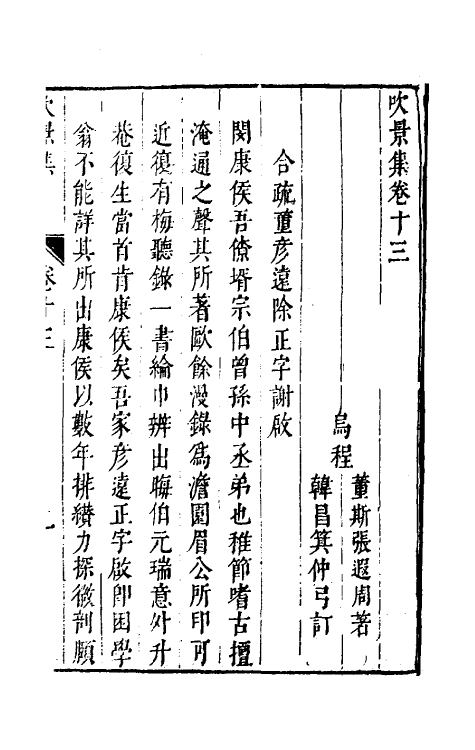 吹景集卷十三
烏程
董斯張遐周著
韓昌箕仲弓訂
合疏董彥遠除正字謝啟
閔康侯吾僚壻宗伯曾孫中丞弟也稚節嗜古擅
淹通之聲其所著歐餘漫錄為澹園眉公所印可
近復有梅聽錄一書綸巾辨出晦伯元瑞意外升
菴復生當首肯康侯矣吾家彥遠正字啟卽困學
翁不能詳其所出康侯以數年排纘力探微剖賾
吹景集
卷十三